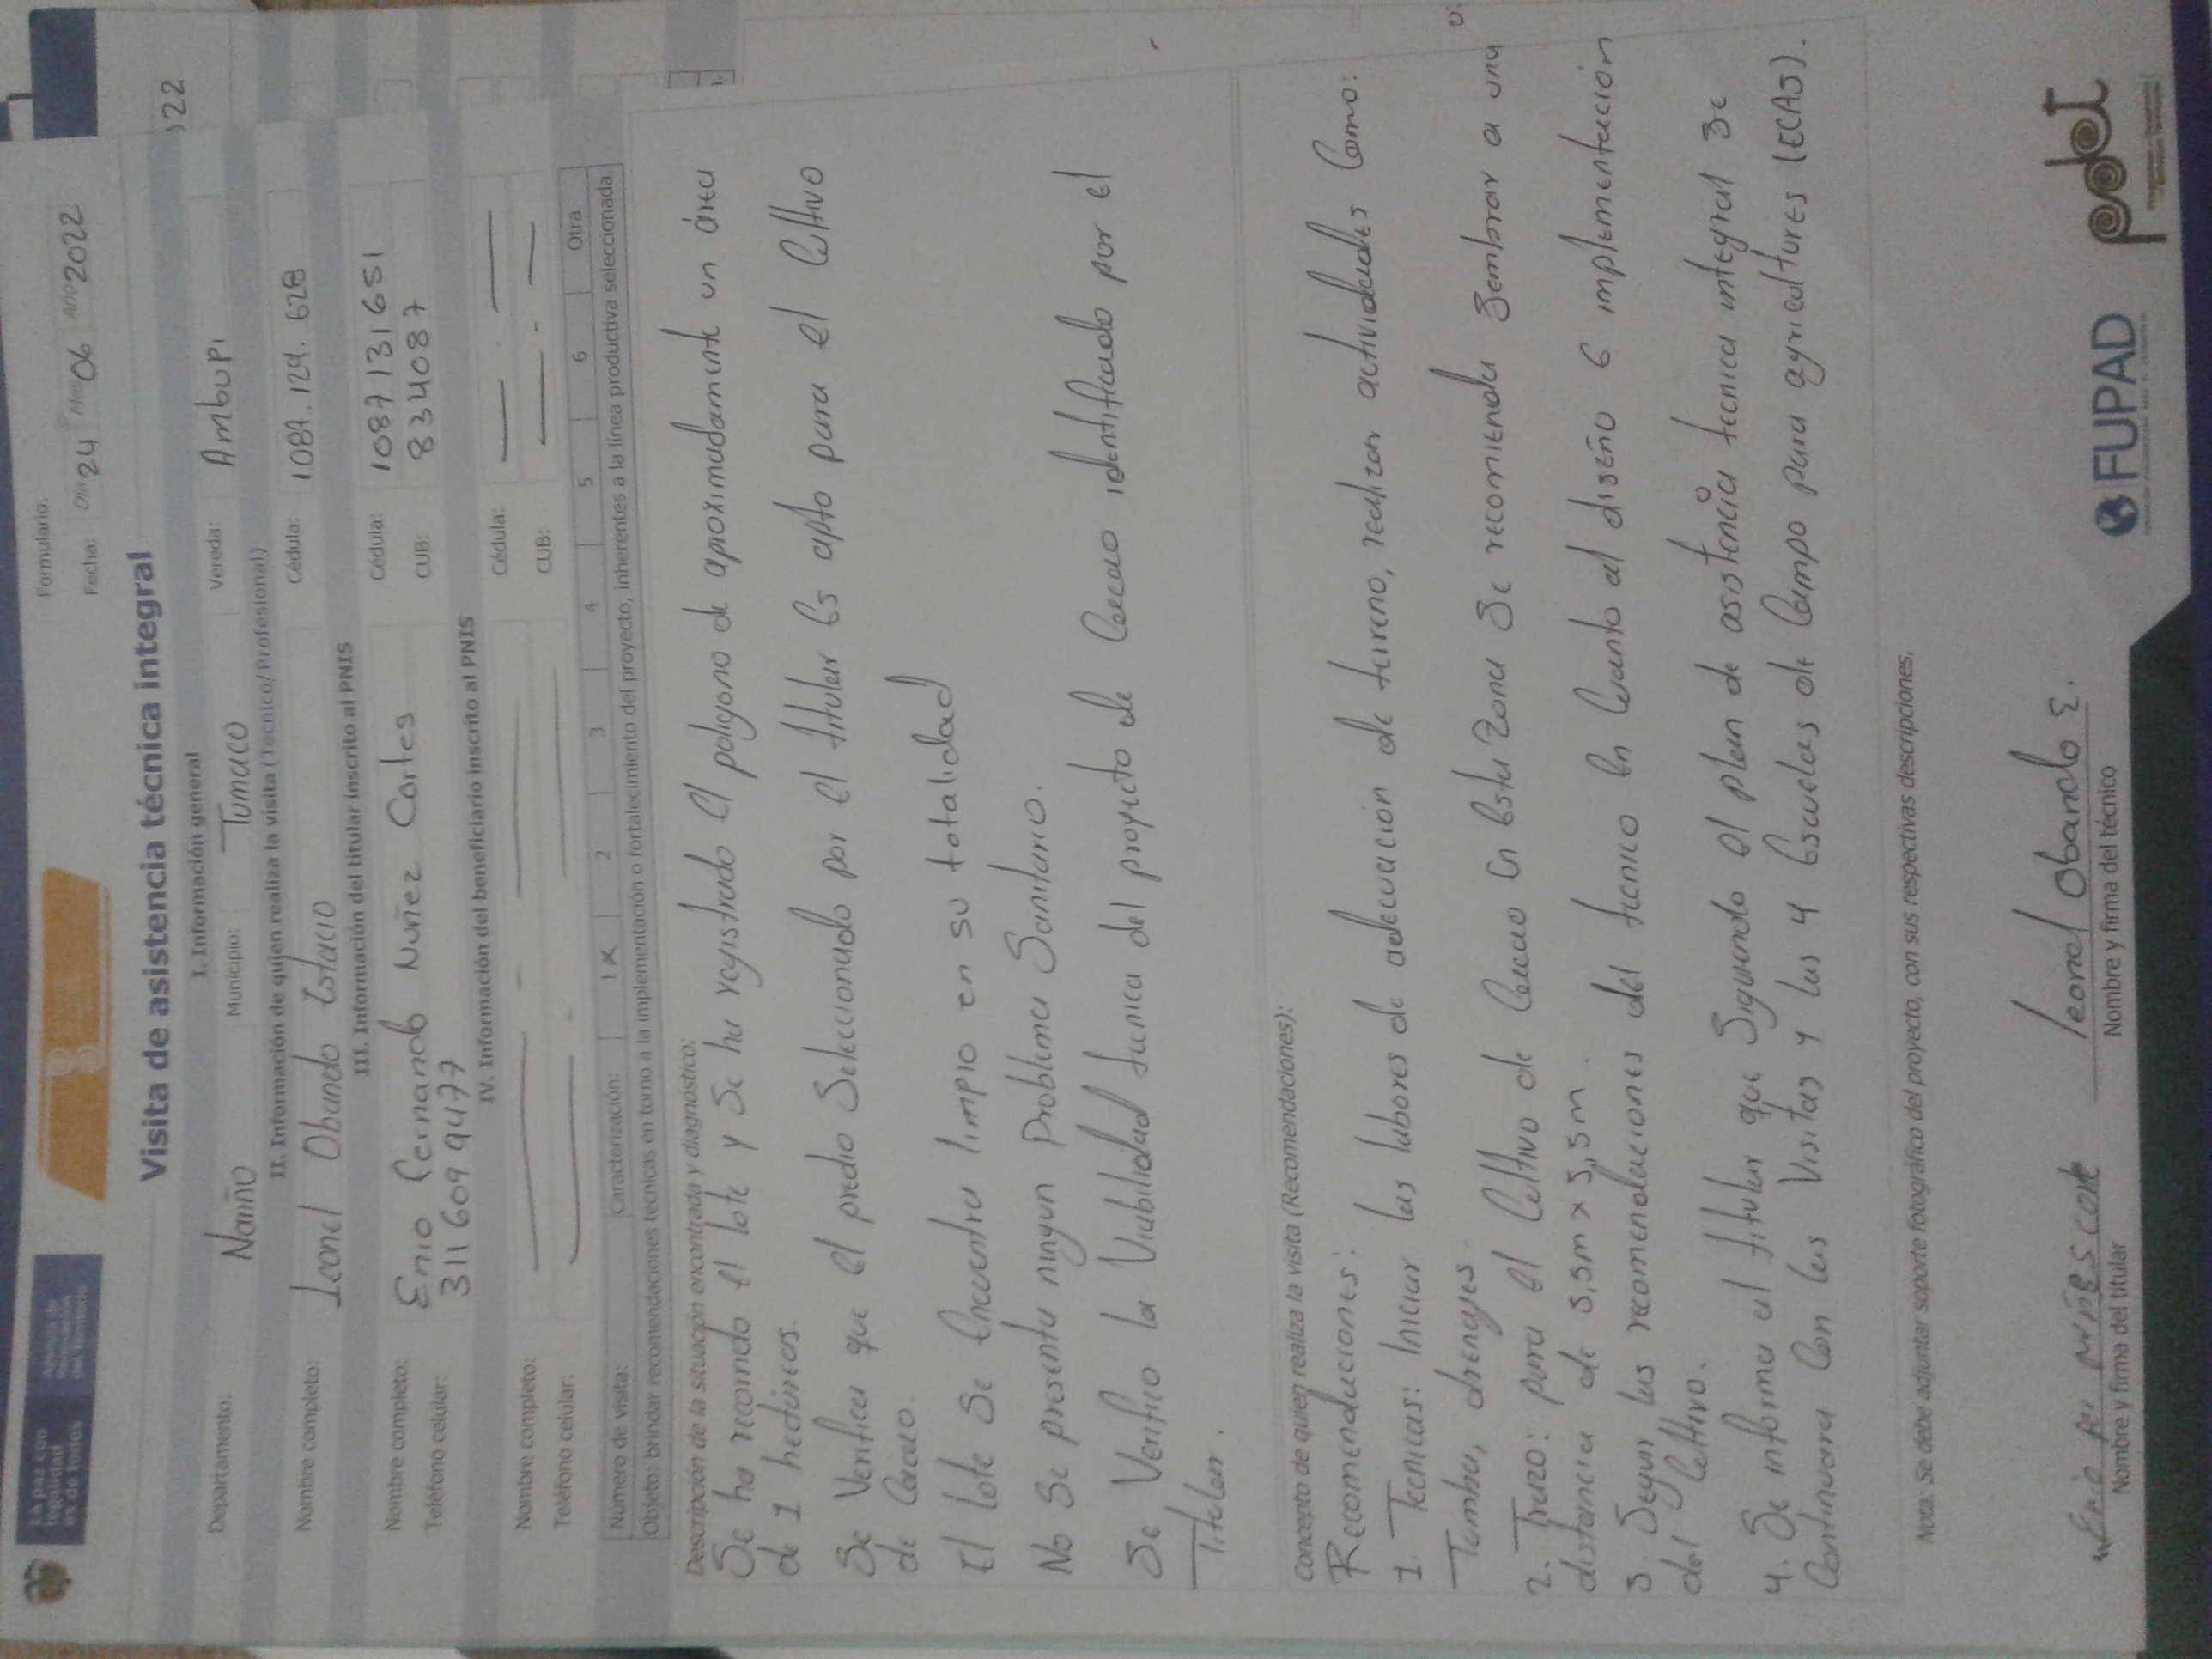 La paz con
legalidad
es de todos
Agencia de
Renovación
del Territorio
Formulario:
Fecha: Día 24 Mes 06 Año 2022
022
Visita de asistencia técnica integral
I. Información general
Departamento: Nariño Municipio: Tumaco Vereda: Ambupi
II. Información de quien realiza la visita (Técnico/Profesional)
Nombre completo: Leonel Obando Estacio Cédula: 1087.124.628
III. Información del titular inscrito al PNIS
Nombre completo: Enio Fernando Nuñez Cortes Cédula: 1087131651
Teléfono celular: 3116099477 CUB: 834087
IV. Información del beneficiario inscrito al PNIS
Nombre completo: Cédula:
Teléfono celular: CUB:
Número de visita: Caracterización: 1 X 2 3 4 5 6 Otra
Objeto: brindar recomendaciones técnicas en torno a la implementación o fortalecimiento del proyecto, inherentes a la línea productiva seleccionada.
Descripción de la situación encontrada y diagnóstico:
Se ha recorrido el lote y Se ha registrado el poligono de aproximadamente un área
de 1 hectáreas.
Se Verifica que el predio Seleccionado por el titular es apto para el Cultivo
de Cacao.
El lote Se encuentra limpio en su totalidad
No Se presenta ningun Problema Sanitario.
Se Verifico la Viabilidad tecnica del proyecto de Cacao identificado por el
Titular.
Concepto de quien realiza la visita (Recomendaciones):
Recomendaciones:
1. Tecnicas: Iniciar las labores de adecuación de terreno, realizar actividades Como:
Tumba, drenajes
2. Trazo: para el Cultivo de Cacao en esta Zona Se recomienda Sembrar a una
distancia de 3,5m x 3,5m.
3. Seguir las recomendaciones del tecnico en Cuanto al diseño e implementación
del Cultivo.
4. Se informa al titular que Siguiendo el plan de asistencia tecnica integral Se
Continuara Con las Visitas y las 4 escuelas de Campo para agricultores (ECAS).
Nota: Se debe adjuntar soporte fotográfico del proyecto, con sus respectivas descripciones.
Enio fer nuñes corte
Nombre y firma del titular
leonel Obando E.
Nombre y firma del técnico
FUPAD
pdet